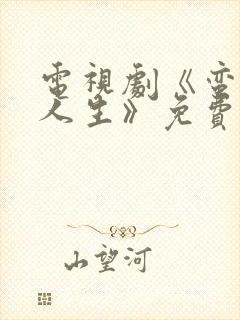 電視劇《蛮
人生》免費
山望河